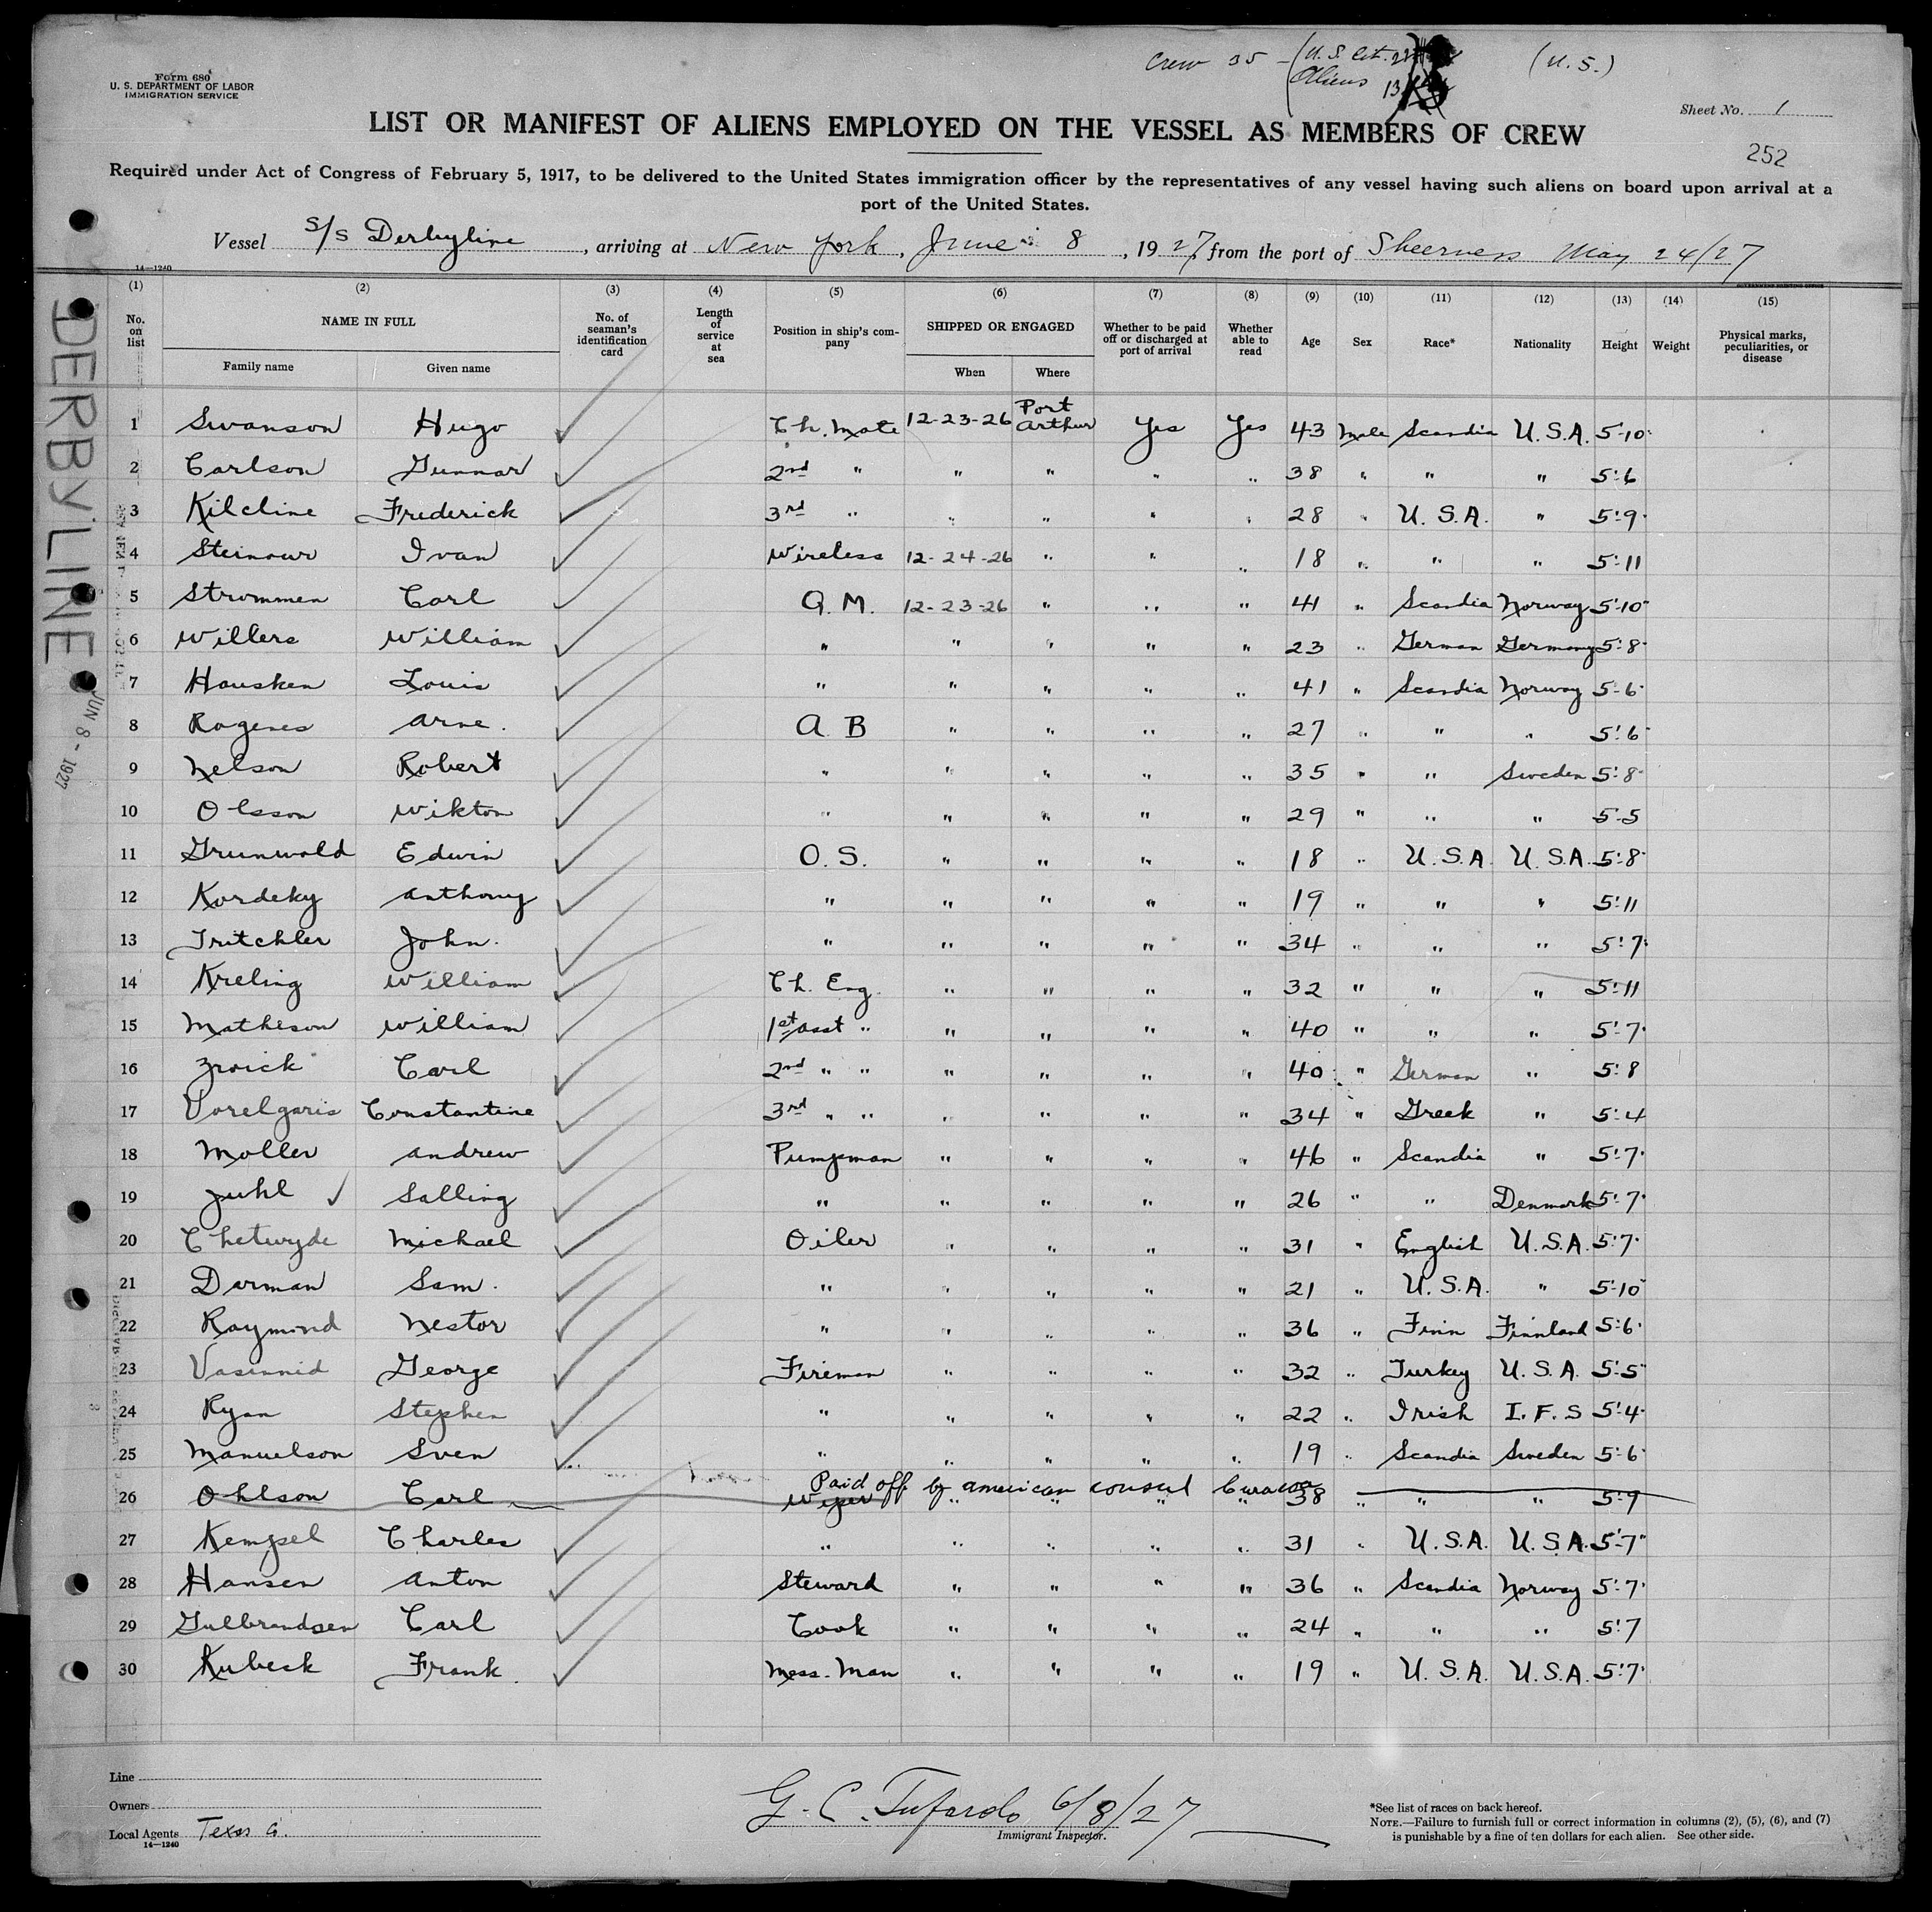 Crew 35 - (U.S. Cit. 22 (U.S.)
Aliens 13
Form 680
U. S. DEPARTMENT OF LABOR
IMMIGRATION SERVICE
Sheet No. 1
LIST OR MANIFEST OF ALIENS EMPLOYED ON THE VESSEL AS MEMBERS OF CREW
252
Required under Act of Congress of February 5, 1917, to be delivered to the United States immigration officer by the representatives of any vessel having such aliens on board upon arrival at a
port of the United States.
Vessel S/S Derbyline, arriving at New York, June 8, 1927, from the port of Sheerness May 24/27
14—1240
GOVERNMENT PRINTING OFFICE
(1) (2) (3) (4) (5) (6) (7) (8) (9) (10) (11) (12) (13) (14) (15)
No. on list
NAME IN FULL
Family name
Given name
No. of seaman's identification card
Length of service at sea
Position in ship's company
SHIPPED OR ENGAGED
When
Where
Whether to be paid off or discharged at port of arrival
Whether able to read
Age
Sex
Race*
Nationality
Height
Weight
Physical marks, peculiarities, or disease
1 Swanson Hugo Ch. Mate 12-23-26 Port Arthur Yes Yes 43 Male Scandia U.S.A. 5-10
2 Carlson Gunnar 2nd " " " " " 38 " " " 5'6
3 Kilcline Frederick 3rd " " " " " 28 " U.S.A. " 5'9
4 Steinour Ivan Wireless 12-24-26 " " " 18 " " " 5'11
5 Strommen Carl Q.M. 12-23-26 " " " 41 " Scandia Norway 5'10
6 Willers William " " " " " 23 " German Germany 5'8
7 Hausken Louis " " " " " 41 " Scandia Norway 5-6
8 Rogenes Arne. A B " " " " 27 " " " 5'6
9 Nelson Robert " " " " " 35 " " Sweden 5'8
10 Olsson Wikton " " " " " 29 " " " 5-5
11 Grunwald Edwin O. S. " " " " 18 " U.S.A. U.S.A. 5'8
12 Kordeky Anthony " " " " " 19 " " " 5'11
13 Tritchler John. " " " " " 34 " " " 5'7
14 Kreling William Ch. Eng. " " " " 32 " " " 5'11
15 Matheson William 1st asst " " " " " 40 " " " 5'7
16 Zroick Carl 2nd " " " " " " 40 " German " 5'8
17 Vorelgaris Constantine 3rd " " " " " " 34 " Greek " 5'4
18 Moller Andrew Pumpman " " " " 46 " Scandia " 5'7
19 Juhl Salling " " " " " 26 " " Denmark 5'7
20 Chetwyde Michael Oiler " " " " 31 " English U.S.A. 5'7
21 Dorman Sam. " " " " " 21 " U.S.A. " 5-10
22 Raymond Nestor " " " " " 36 " Finn Finnland 5'6
23 Vasinnid George Fireman " " " " 32 " Turkey U.S.A. 5'5
24 Ryan Stephen " " " " " 22 " Irish I.F.S 5'4
25 Manuelson Sven " " " " " 19 " Scandia Sweden 5'6
Paid off by American consul Curacoa
26 Ohlson Carl Wiper " " " " 38 " " " 5'9
27 Kempel Charles " " " " " 31 " U.S.A. U.S.A. 5'7
28 Hansen Anton Steward " " " " 36 " Scandia Norway 5'7
29 Gulbrandsen Carl Cook " " " " 24 " " " 5'7
30 Kubeck Frank. Mess-Man " " " " 19 " U.S.A. U.S.A. 5'7
DERBYLINE
JUN 8 - 1927
Line
Owners
Local Agents Texas Co.
14—1240
G. C. Tufardo 6/8/27
Immigrant Inspector.
*See list of races on back hereof.
NOTE.—Failure to furnish full or correct information in columns (2), (5), (6), and (7)
is punishable by a fine of ten dollars for each alien. See other side.